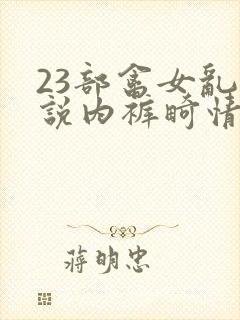 23部畜女乱
説内裤畸情
蒋明忠